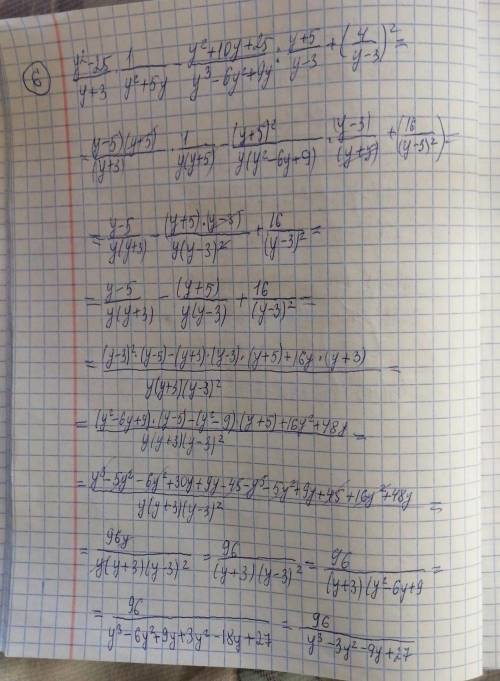 6
(y²-25)/(y+3) · 1/(y²+5y) - (y²+10y+25)/(y³-6y²+9y) : (y+5)/(y-3) + (4/(y-3))² =
= (y-5)(y+5)/(y+3) · 1/(y(y+5)) - (y+5)²/(y(y²-6y+9)) · (y-3)/(y+5) + (16/(y-3)²) =
= (y-5)/(y(y+3)) - (y+5)·(y-3)/(y(y-3)²) + 16/(y-3)² =
= (y-5)/(y(y+3)) - (y+5)/(y(y-3)) + 16/(y-3)² =
= ((y-3)²·(y-5)-(y+3)·(y-3)·(y+5)+16y·(y+3))/(y(y+3)(y-3)²) =
= ((y²-6y+9)·(y-5)-(y²-9)(y+5)+16y²+48y)/(y(y+3)(y-3)²) =
= (y³-5y²-6y²+30y+9y-45-y³-5y²+9y+45+16y²+48y)/(y(y+3)(y-3)²) =
= 96y/(y(y+3)(y-3)²) = 96/((y+3)(y-3)²) = 96/((y+3)(y²-6y+9 =
= 96/(y³-6y²+9y+3y²-18y+27) = 96/(y³-3y²-9y+27)